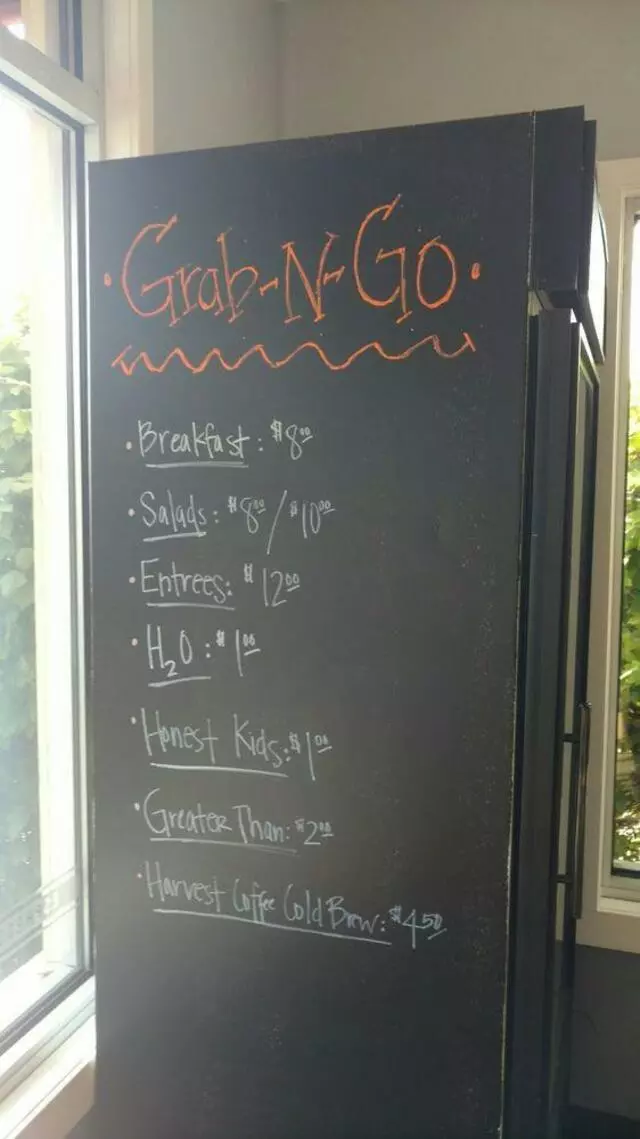 · Grab-N-Go ·
· Breakfast: $8.00
· Salads: $8.00/$10.00
· Entrees: $12.00
· H2O: $1.00
· Honest Kids: $1.00
· Greater Than: $2.00
· Harvest Coffee Cold Brew: $4.50